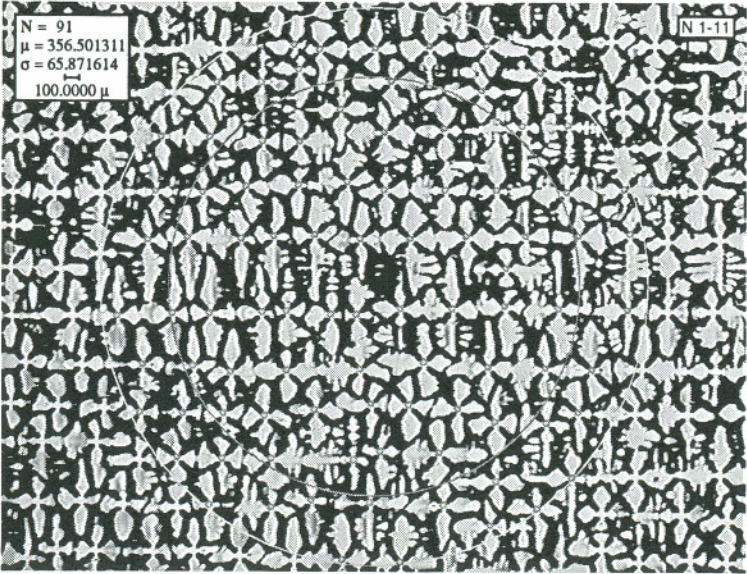 N = 91
μ = 356.501311
σ = 65.871614
100.0000 μ
N 1-11